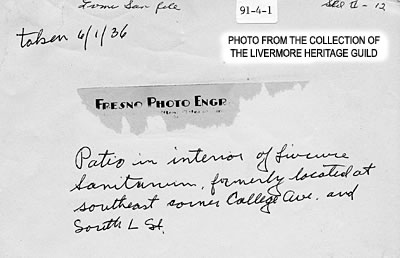 from San file
91-4-1
taken 6/1/36
PHOTO FROM THE COLLECTION OF
THE LIVERMORE HERITAGE GUILD
FRESNO PHOTO ENGR
Patio in interior of Livermore
Sanitarium, formerly located at
southeast corner College Ave. and
South L St.